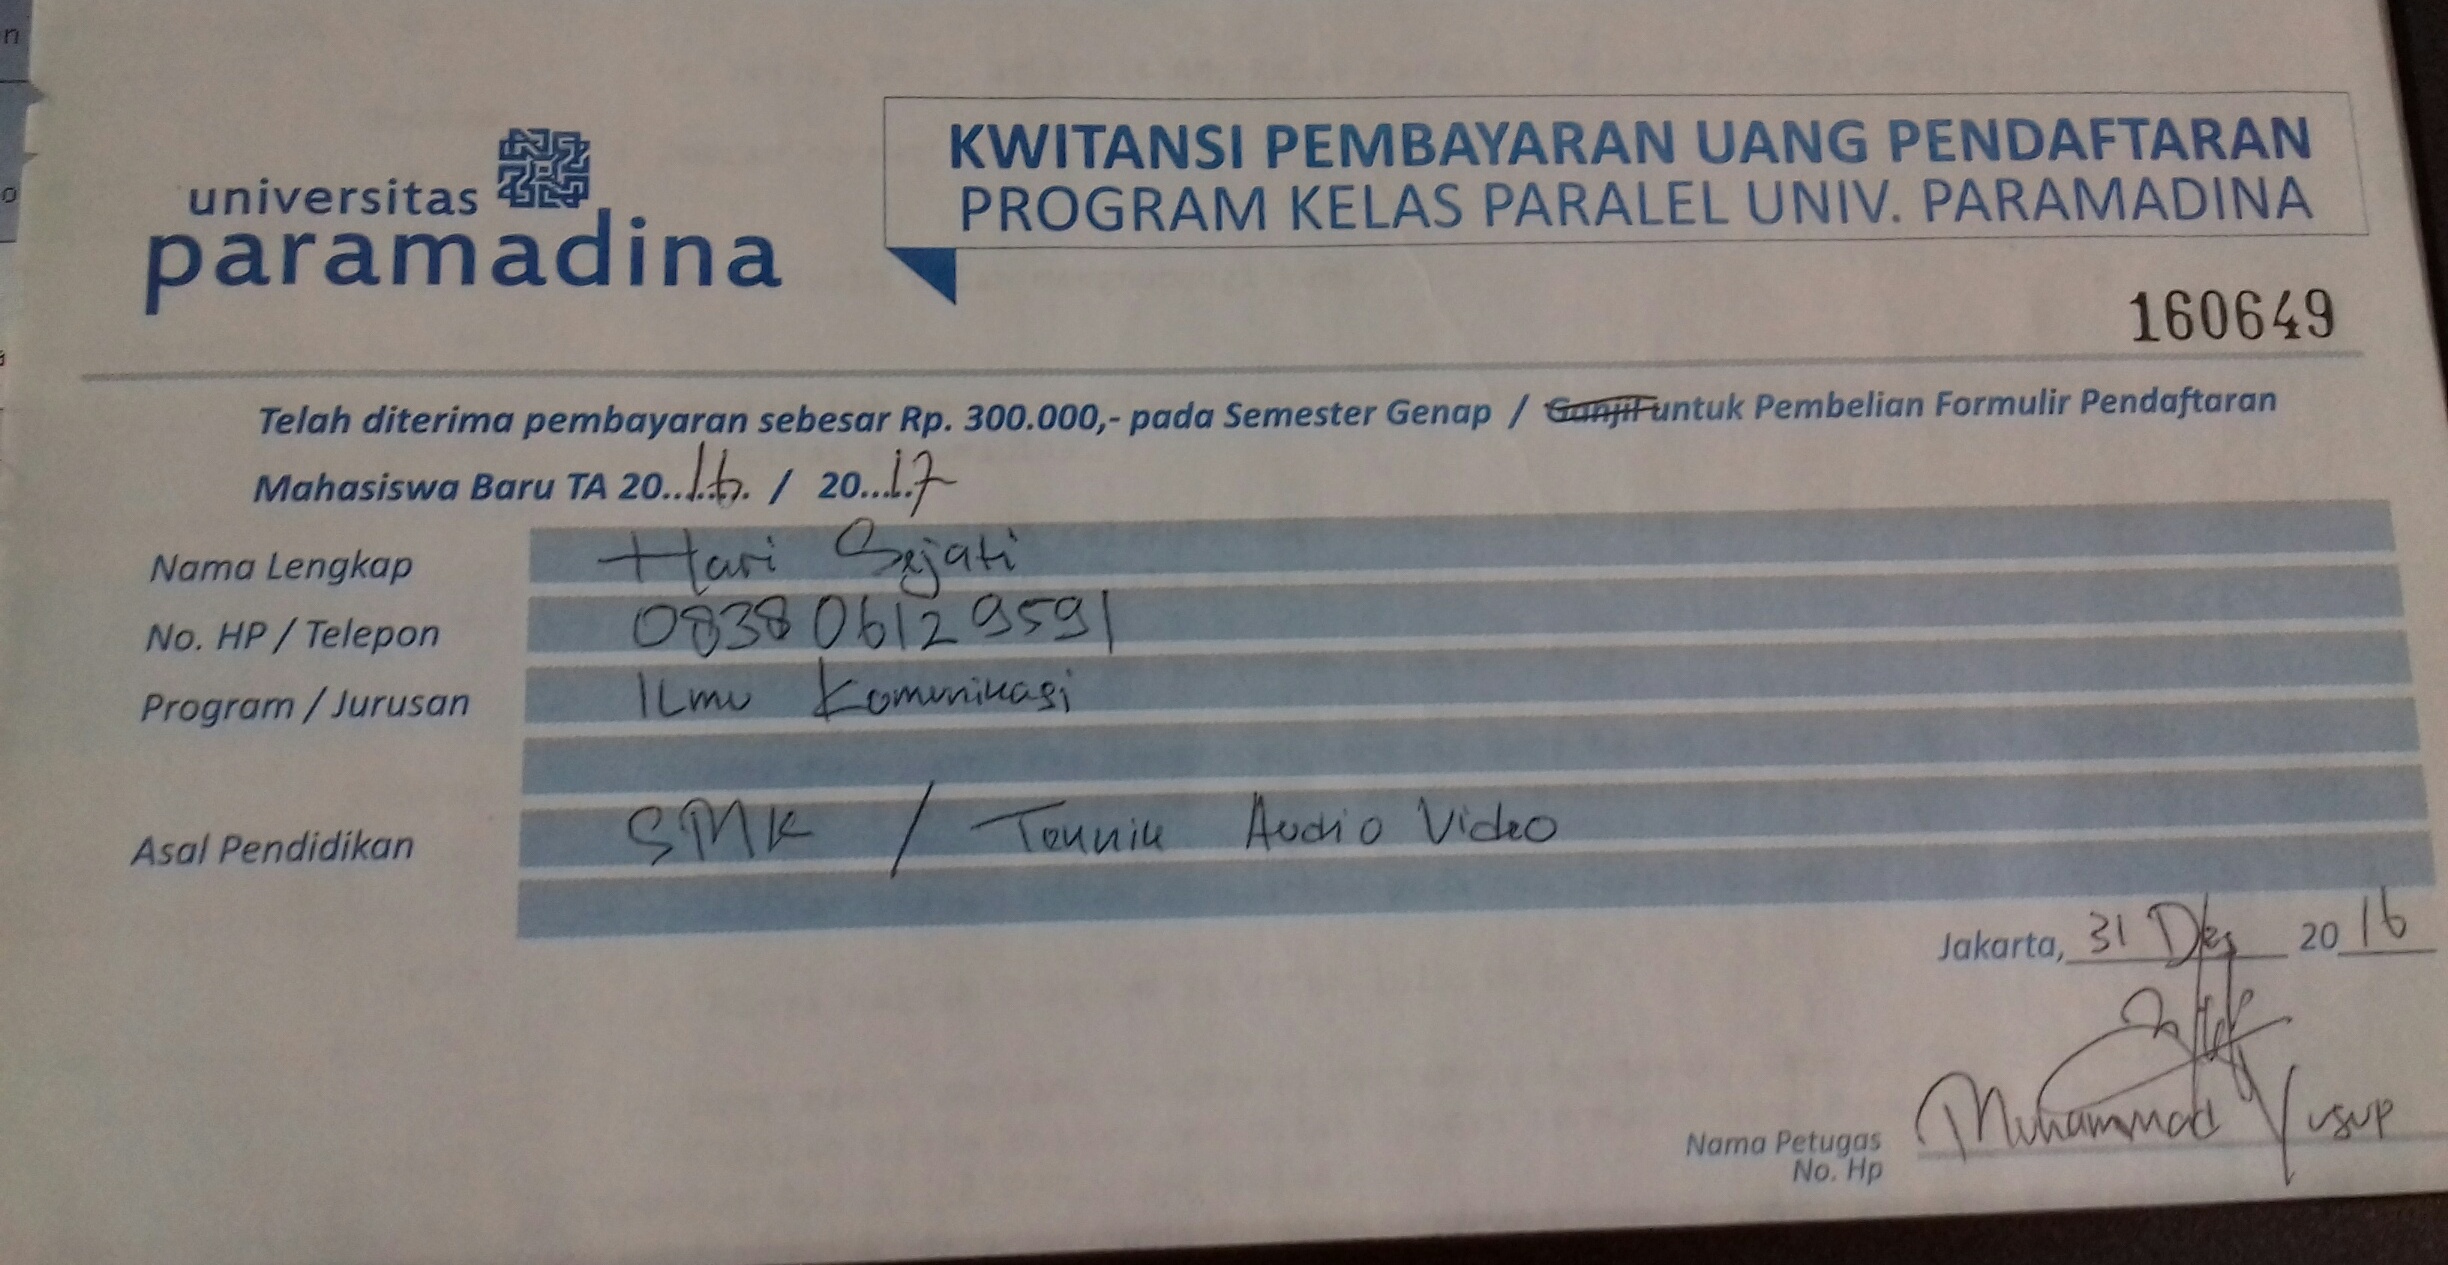 universitas
paramadina
KWITANSI PEMBAYARAN UANG PENDAFTARAN
PROGRAM KELAS PARALEL UNIV. PARAMADINA
160649
Telah diterima pembayaran sebesar Rp. 300.000,- pada Semester Genap / Ganjil untuk Pembelian Formulir Pendaftaran
Mahasiswa Baru TA 20..16. / 20...17
Nama Lengkap Hari Sejati
No. HP / Telepon 083806129591
Program / Jurusan Ilmu Komunikasi
Asal Pendidikan SMK / Teknik Audio Video
Jakarta, 31 Des 2016
Nama Petugas Muhammad Yusup
No. Hp